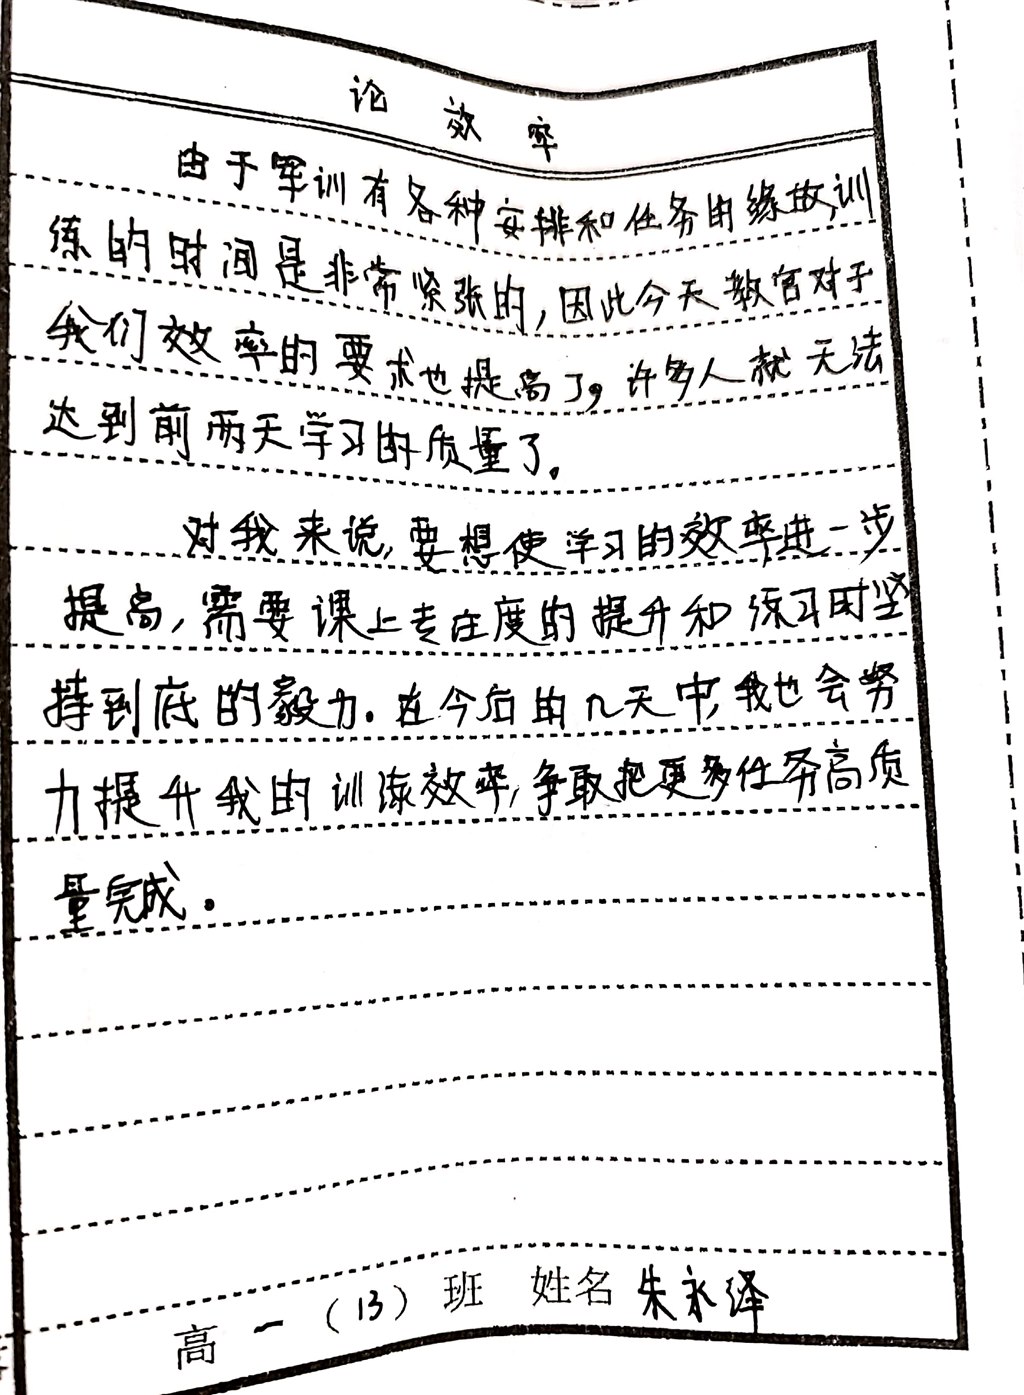 论效率
由于军训有各种安排和任务的缘故,训
练的时间是非常紧张的,因此今天教官对于
我们效率的要求也提高了。许多人就无法
达到前两天学习的质量了。
对我来说,要想使学习的效率进一步
提高,需要课上专注度的提升和练习时坚
持到底的毅力。在今后的几天中,我也会努
力提升我的训练效率,争取把更多任务高质
量完成。
高一(13)班 姓名 朱永泽